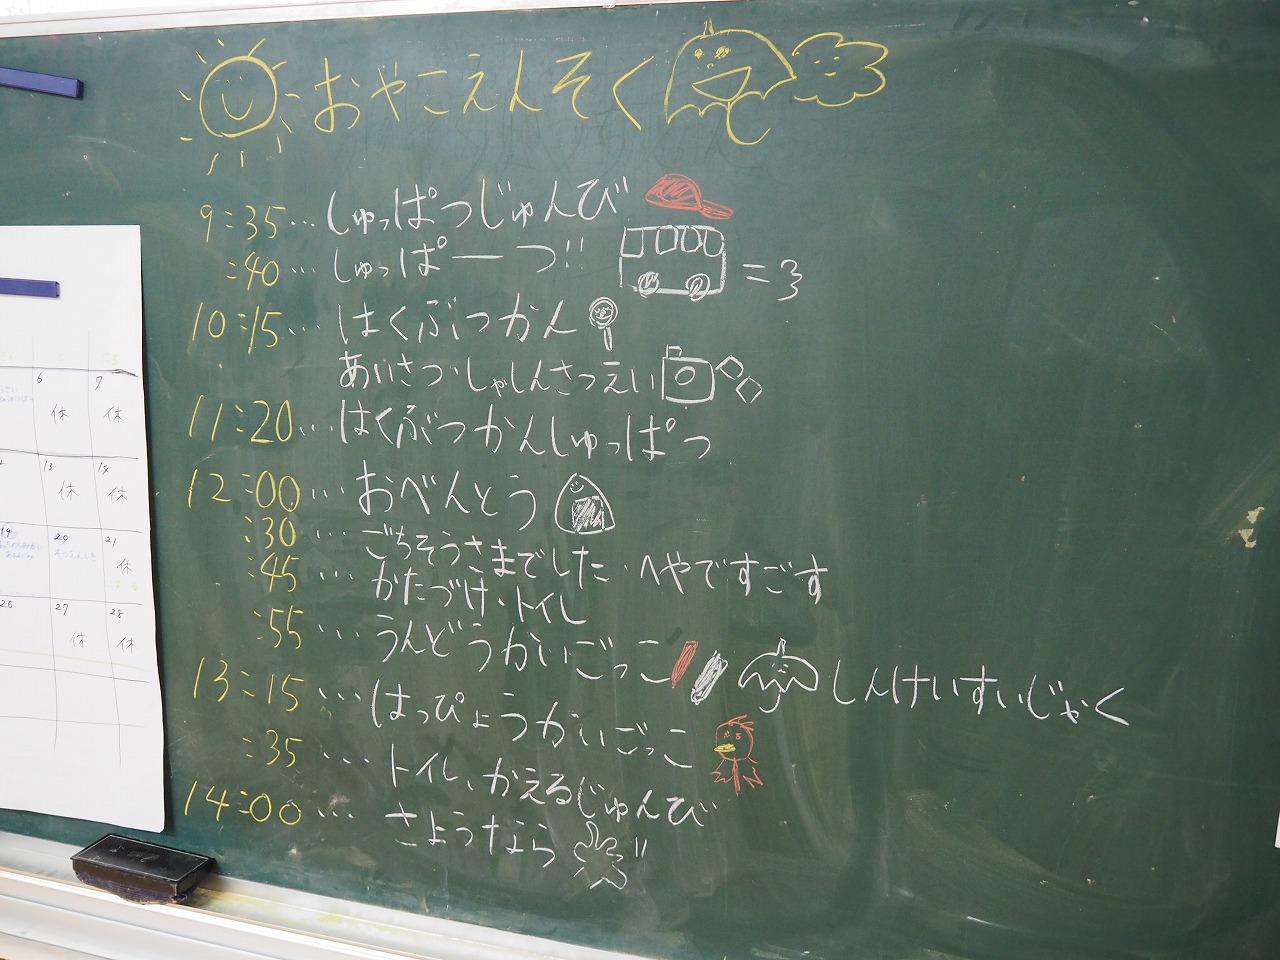 おやこえんそく
9:35…しゅっぱつじゅんび
:40…しゅっぱーつ!!
10:15…はくぶつかん
あいさつ・しゃしんさつえい
11:20…はくぶつかんしゅっぱつ
12:00…おべんとう
:30…ごちそうさまでした・へやですごす
:45…かたづけ・トイレ
:55…うんどうかいごっこ しんけいすいじゃく
13:15…はっぴょうかいごっこ
:35…トイレ、かえるじゅんび
14:00…さようなら
6 7
休 休
13 14
休 休
19 20 21
休
26 27 28
休 休